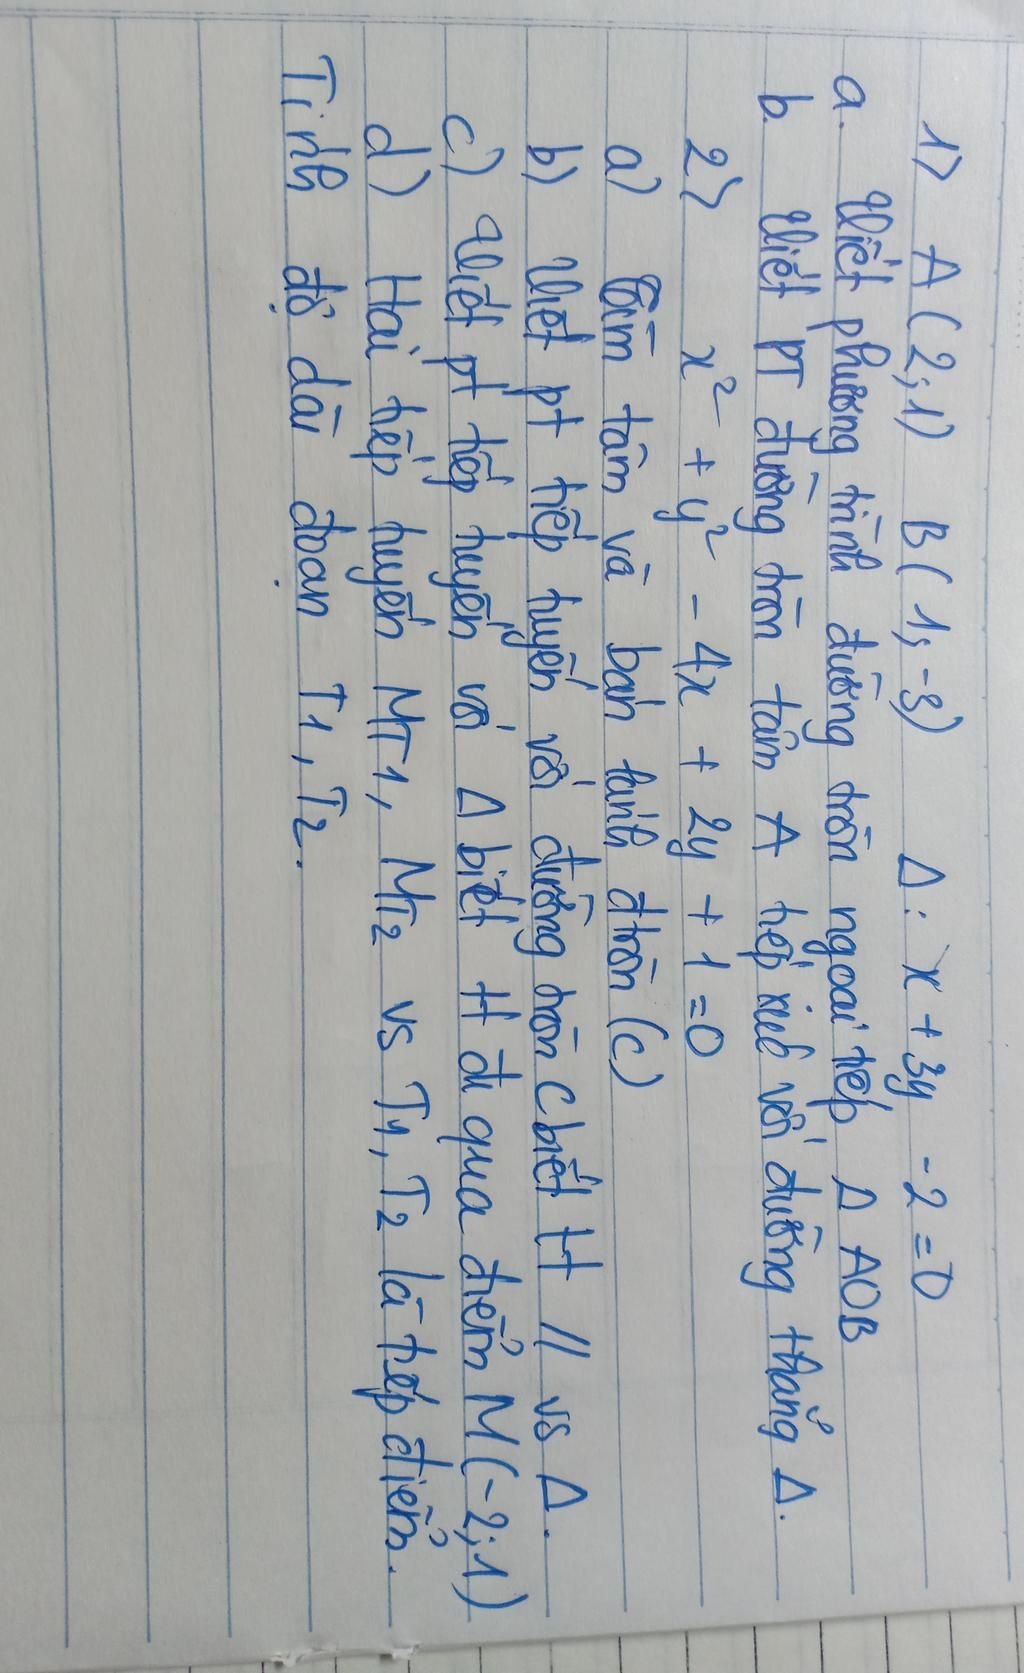 1> A(2;1) B(1;-3) Δ: x + 3y - 2 = 0
a. Viết phương trình đường tròn ngoại tiếp Δ AOB
b. Viết PT đường tròn tâm A tiếp xúc với đường thẳng Δ.
2> x² + y² - 4x + 2y + 1 = 0
a) Tìm tâm và bán kính đtròn (C)
b) Viết pt tiếp tuyến với đường tròn C biết tt // vs Δ.
c) Viết pt tiếp tuyến với Δ biết tt đi qua điểm M(-2;1)
d) Hai tiếp tuyến MT1, MT2 vs T1, T2 là tiếp điểm.
Tính độ dài đoạn T1, T2.